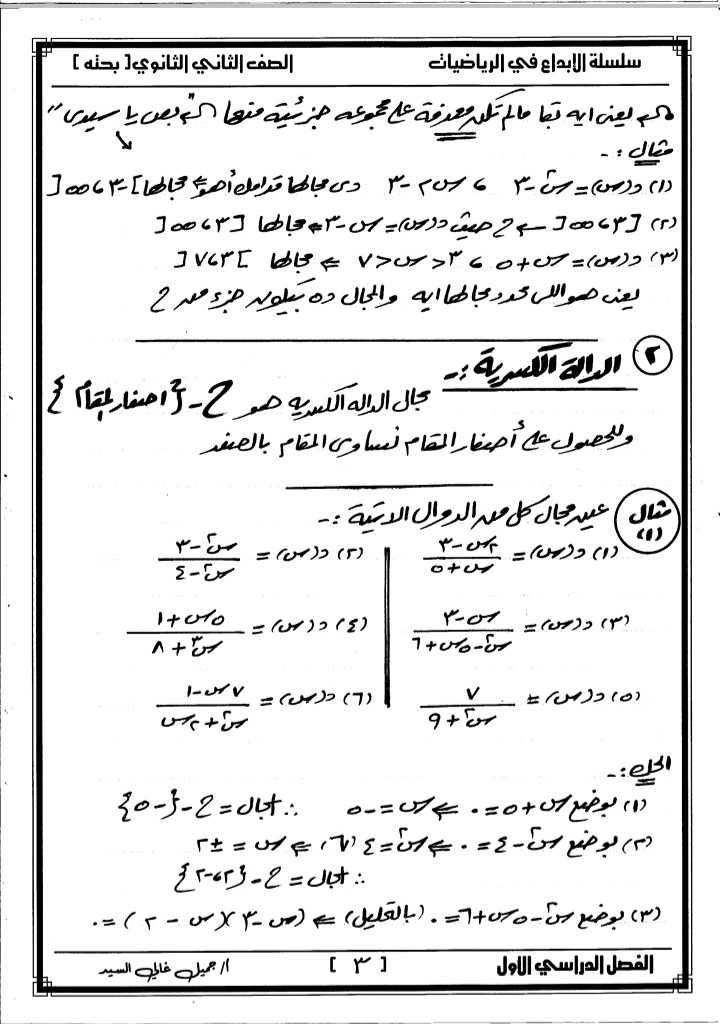 سلسلة الإبداع في الرياضيات
الصف الثاني الثانوي [ بحته ]
يعنى ايه بقا مالم تكن معرفة على مجموعه جزئية منها " بص يا سيدى "
مثال :-
(١) د(س) = س٢ - ٣ ، س ≥ -٣ دى مجالها قدامك أهو ⇐ مجالها [-٣ ، ∞[
(٢) [٣ ، ∞[ ← ح حيث د(س) = س - ٣ ⇐ مجالها [٣ ، ∞[
(٣) د(س) = س + ٥ ، ٣ < س < ٧ ⇐ مجالها ]٣ ، ٧[
يعنى هو اللى محدد مجالها ايه والمجال ده بيكون جزء من ح
(٢) الدالة الكسرية :-
مجال الداله الكسريه هو ح - { اصفار المقام }
وللحصول على أصفار المقام نساوى المقام بالصفر
مثال (١) عين مجال كل من الدوال الاتية :-
(١) د(س) = (٢س - ٣)/(س + ٥) (٢) د(س) = (س٢ - ٣)/(س٢ - ٤)
(٣) د(س) = (س - ٣)/(س٢ - ٥س + ٦) (٤) د(س) = (٥س + ١)/(س٣ + ٨)
(٥) د(س) = ٧/(س٢ + 9) (٦) د(س) = (٧س - ١)/(س٢ + ٢س)
الحل :-
(١) بوضع س + ٥ = ٠ ⇐ س = -٥ ∴ المجال = ح - {-٥}
(٢) بوضع س٢ - ٤ = ٠ ⇐ س٢ = ٤ (√) ⇐ س = ± ٢
∴ المجال = ح - {٢ ، -٢}
(٣) بوضع س٢ - ٥س + ٦ = ٠ (بالتحليل) ⇐ (س - ٣)(س - ٢) = ٠
الفصل الدراسي الأول
[ ٣ ]
أ/ جميل غالي السيد